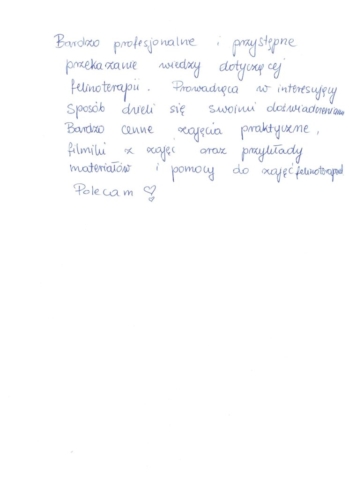 Bardzo profesjonalne i przystępne
przekazanie wiedzy dotyczącej
felinoterapii. Prowadząca w interesujący
sposób dzieli się swoimi doświadczeniami
Bardzo cenne zajęcia praktyczne,
filmiki z zajęć oraz przykłady
materiałów i pomocy do zajęć felinoterapii
Polecam ♡